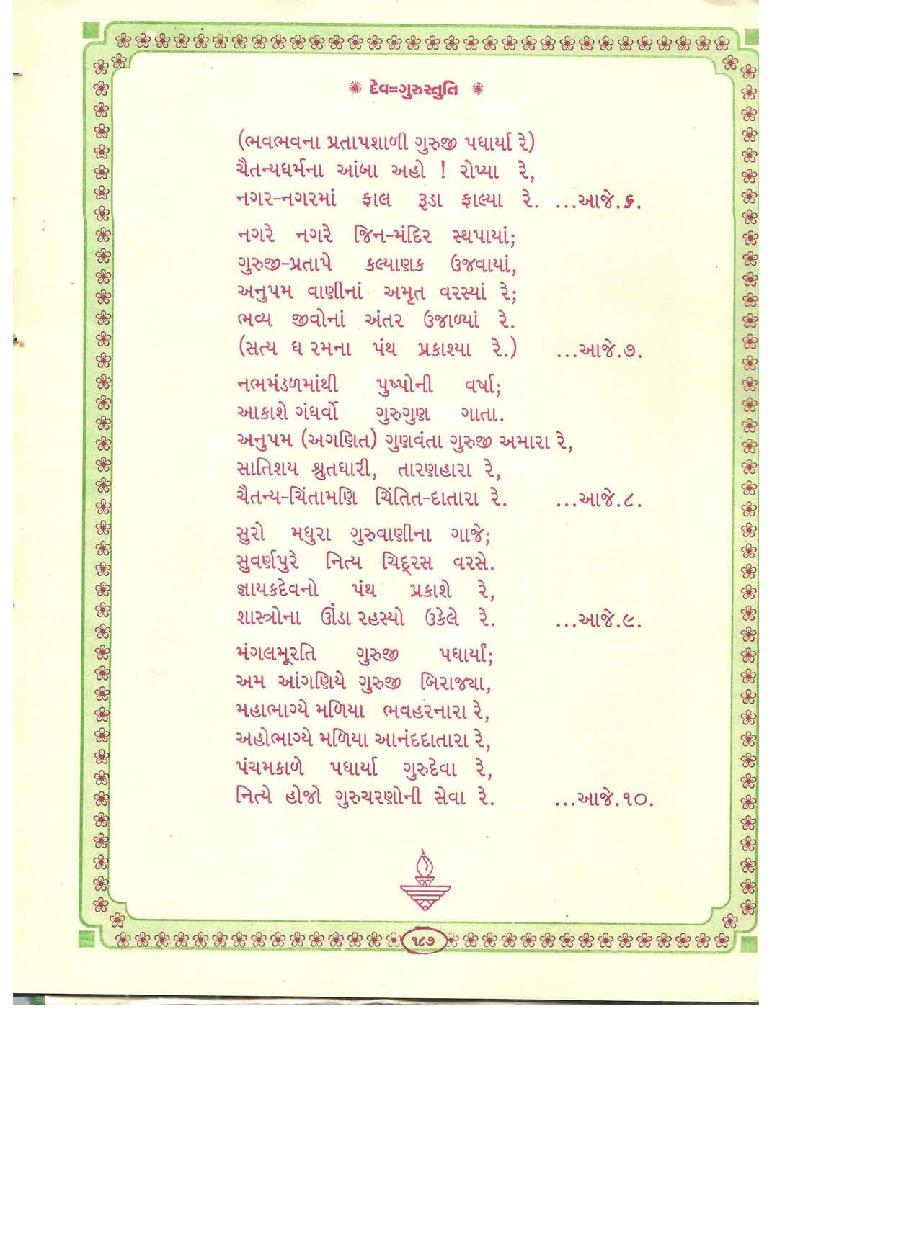 ✺ દેવ=ગુરુસ્તુતિ ✺
(ભવભવના પ્રતાપશાળી ગુરુજી પધાર્યા રે)
ચૈતન્યધર્મના આંબા અહો ! રોપ્યા રે,
નગર-નગરમાં ફાલ રૂડા ફાલ્યા રે. ...આજે.૬.
નગરે નગરે જિન-મંદિર સ્થપાયાં;
ગુરુજી-પ્રતાપે કલ્યાણક ઉજવાયાં,
અનુપમ વાણીનાં અમૃત વરસ્યાં રે;
ભવ્ય જીવોનાં અંતર ઉજાળ્યાં રે.
(સત્ય ધ રમના પંથ પ્રકાશ્યા રે.) ...આજે.૭.
નભમંડળમાંથી પુષ્પોની વર્ષા;
આકાશે ગંધર્વો ગુરુગુણ ગાતા.
અનુપમ (અગણિત) ગુણવંતા ગુરુજી અમારા રે,
સાતિશય શ્રુતધારી, તારણહારા રે,
ચૈતન્ય-ચિંતામણિ ચિંતિત-દાતારા રે. ...આજે.૮.
સુરો મધુરા ગુરુવાણીના ગાજે;
સુવર્ણપુરે નિત્ય ચિદ્રસ વરસે.
જ્ઞાયકદેવનો પંથ પ્રકાશે રે,
શાસ્ત્રોના ઊંડા રહસ્યો ઉકેલે રે. ...આજે.૯.
મંગલમૂરતિ ગુરુજી પધાર્યાં;
અમ આંગણિયે ગુરુજી બિરાજ્યા,
મહાભાગ્યે મળિયા ભવહરનારા રે,
અહોભાગ્યે મળિયા આનંદદાતારા રે,
પંચમકાળે પધાર્યા ગુરુદેવા રે,
નિત્યે હોજો ગુરુચરણોની સેવા રે. ...આજે.૧૦.
૧૮૭